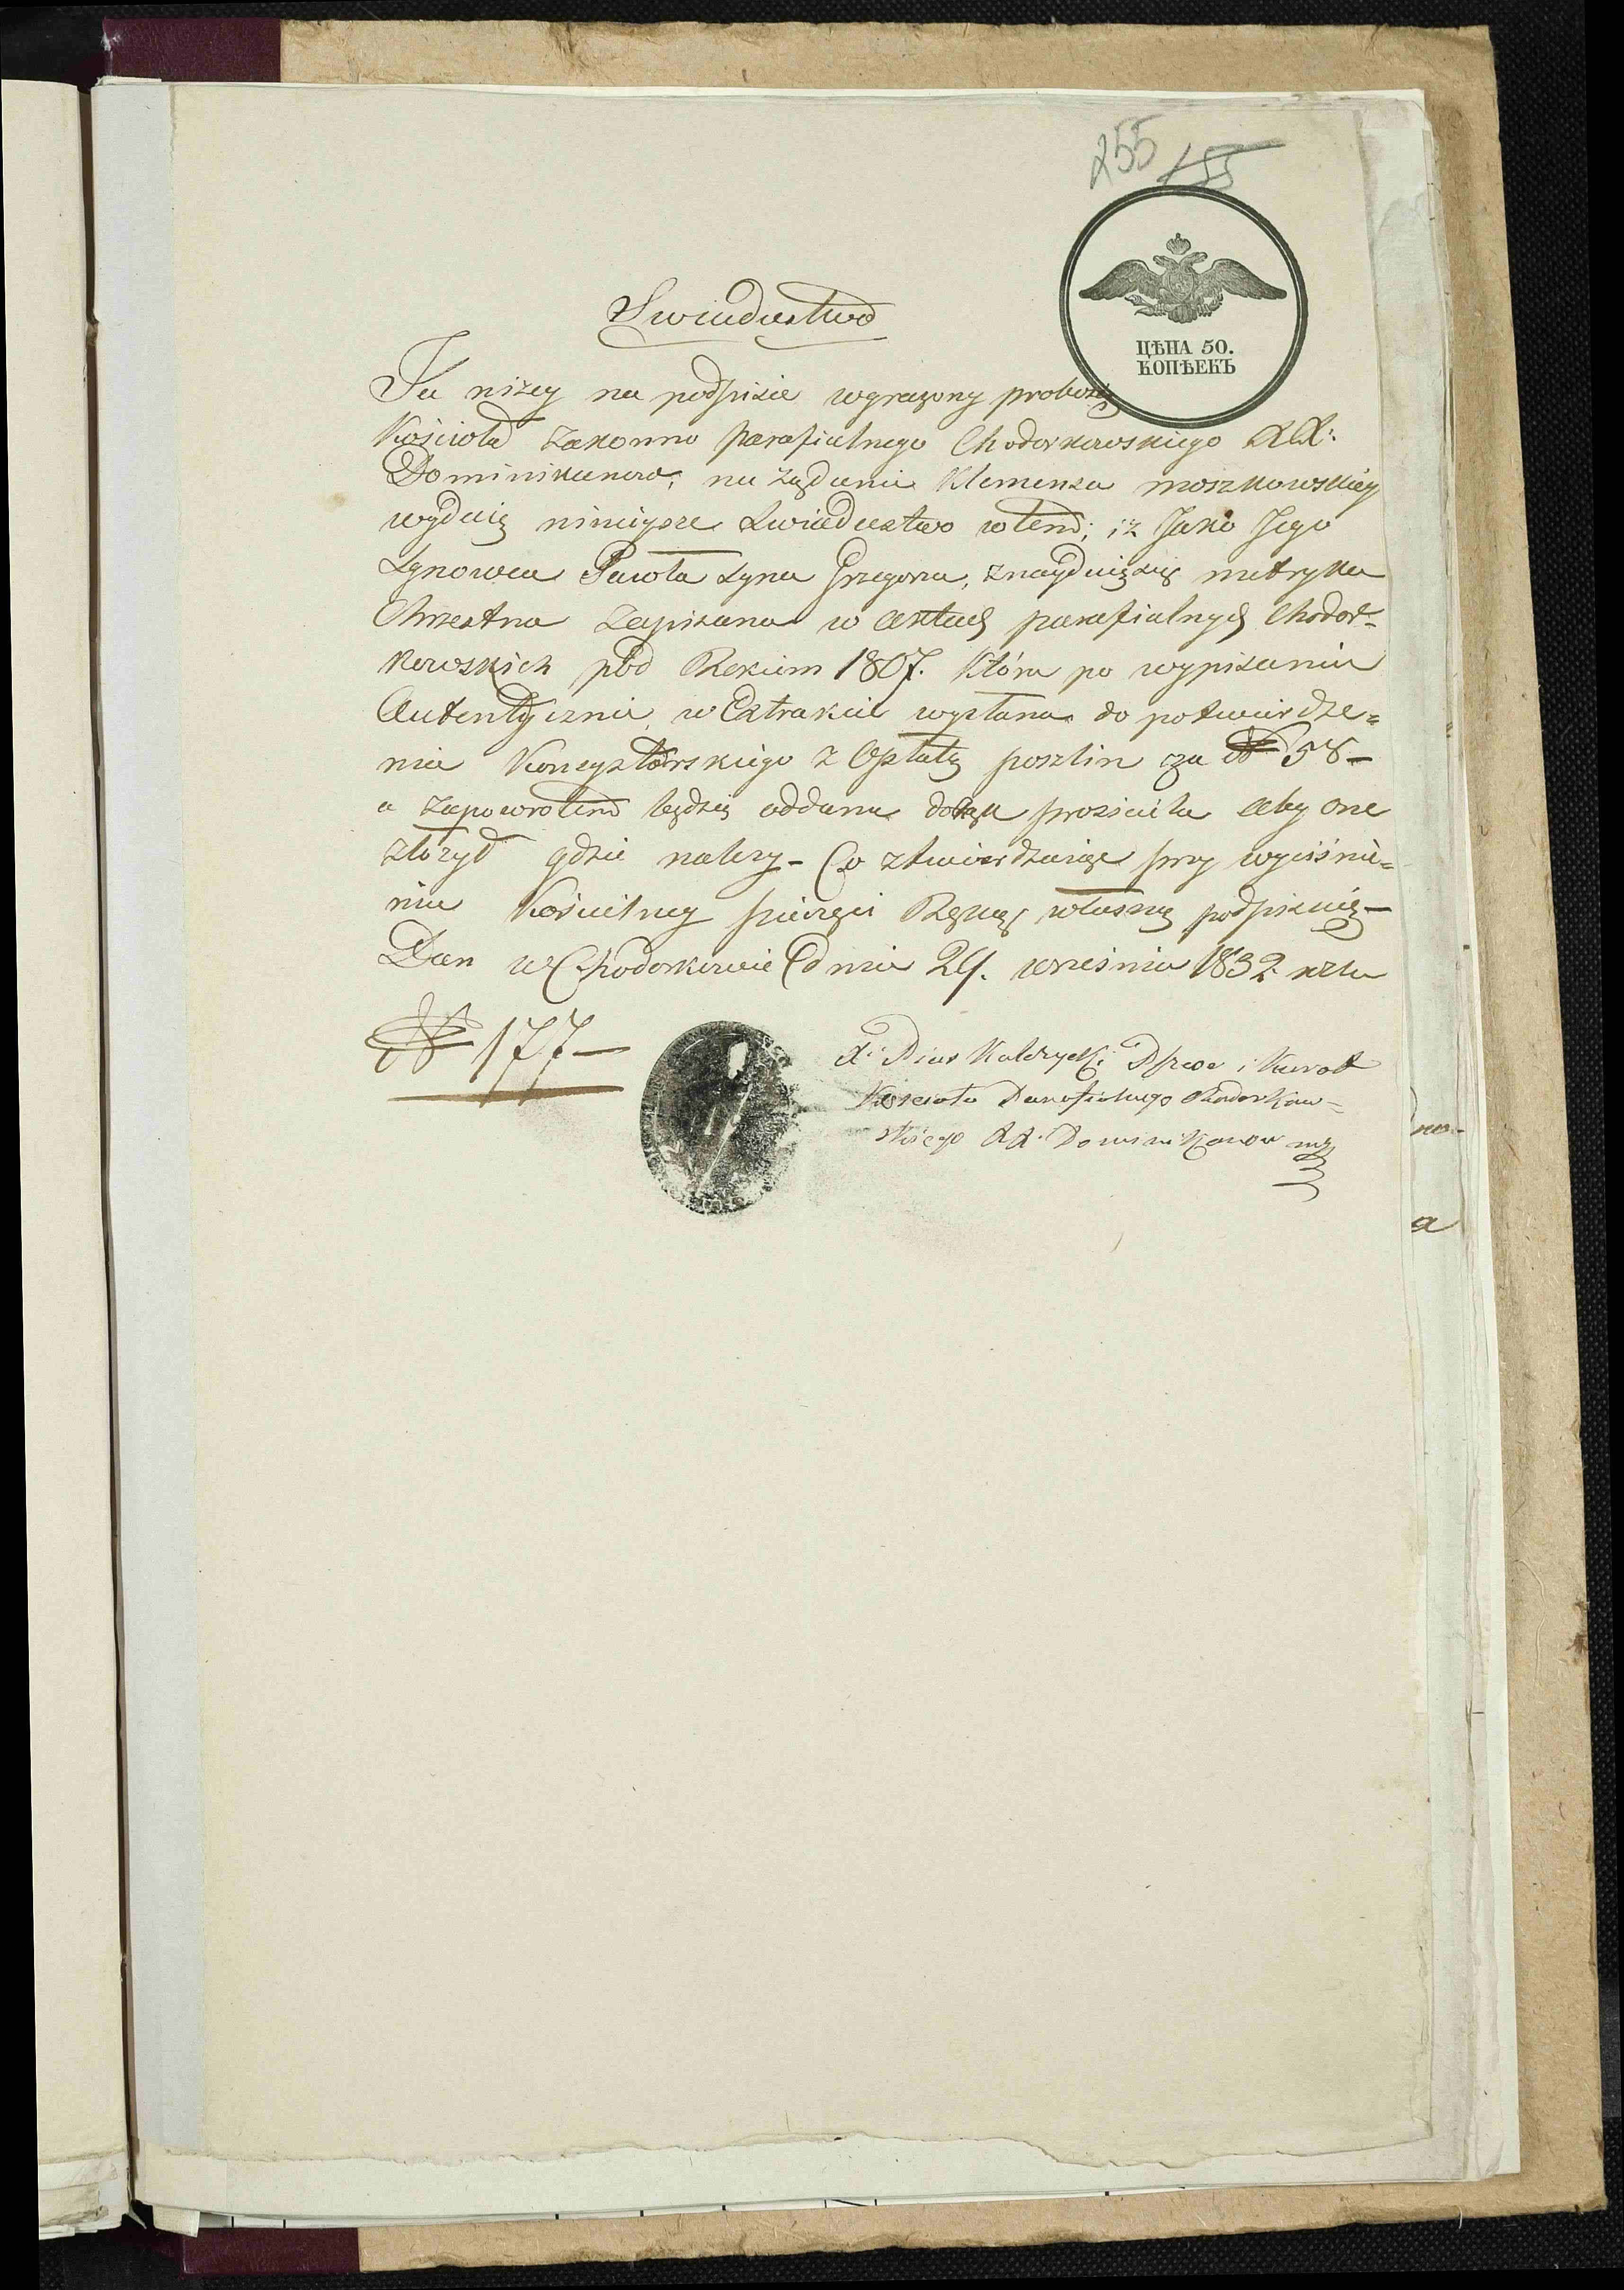 255 155
ЦѢНА 50.
КОПѢЕКЪ
Swiadectwo
Ja niżey na podpisie wyrażony proboszcz
Kościoła Zakonno parafialnego Chodorkowskiego XX:
Dominikanow, na żądanie Klemensa Moszkowskiey
wydaię ninieysze Swiadectwo w tem; iż Jako Jego
Synowca Pawła Syna Grzegorza, znayduię się metryka
Chrzestna Zapisana w Aktach parafialnych Chodor=
kowskich pod Rokiem 1807. Która po wypisaniu
Autentycznie w Extrakcie wysłana do potwierdze=
nia Konsystorskiego z Opłatą poszlin za № 58-
a zapowrotem będzie oddana aby one
złożył gdzie należy - Co ztwierdzaiąc przy wyciśnie=
niu Kościelney pieczęci Ręką własną podpisuię -
Dan w Chodorkowie dnia 24. września 1832 roku
№ 177-
X: Pius i Kurat
Koscioła Parafialnego Chodorkow=
skiego XX. Dominikanow mp
no-
a